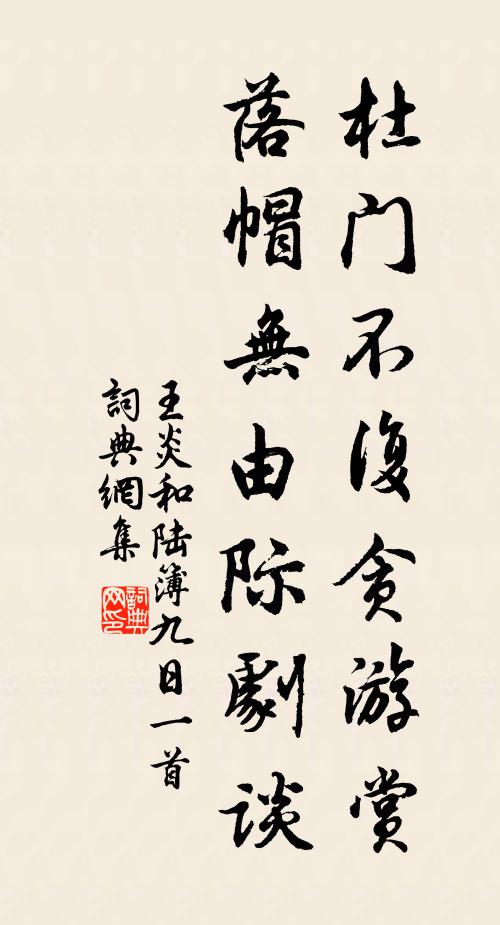 杜门不復贪游賞
落帽無由际劇谈
王炎和陆簿九日一首
詞典網集
詞典网印